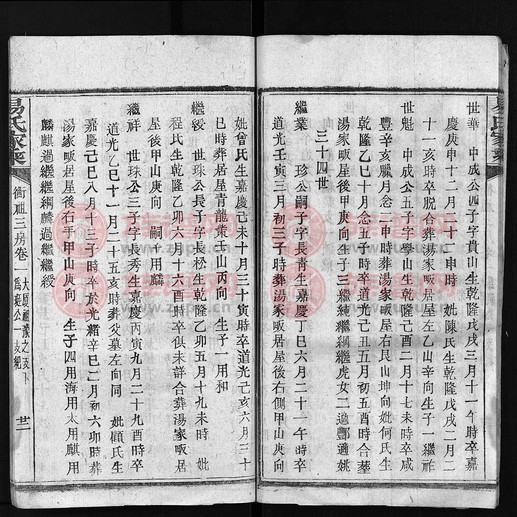 世華 中成公四子字貴山生乾隆戊戌三月十一午時卒嘉
慶庚申十二月二十二申時 妣陳氏生乾隆戊戌二月二
十一亥時卒脫合葬湯家畈居屋左乙山辛向生子一繼祚
世魁 中成公五子字學山生乾隆己酉二月十七未時卒咸
豐辛亥臘月念二申時葬湯家畈居屋右艮山坤向妣何氏生
乾隆乙巳十月念五子時卒道光丑五月初五酉時合葬
湯家畈居屋後甲庚向生子三繼純繼綱繼虎女二適鄷適姚
三十四世
繼業 珍公嗣子字長青生嘉慶丁巳六月二十一午時
道光壬寅三月初三子時葬湯家畈居屋後右側甲山庚向
妣曾氏生嘉慶己未十月三十寅時卒道光己亥六月三十
巳時葬居屋青龍嘴壬山丙向 生子一用和
繼綬 世珠公長子字長松生乾隆乙卯五月十九未時 妣
程氏生乾隆乙卯六月十六酉時卒俱未詳合葬湯家畈居
屋後甲山庚向 嗣子用琇
繼祥 世珠公三子字長秀生嘉慶丙寅九月二十九酉時卒
道光乙巳十一月二十五亥時葬父墓左向同 妣顧氏生
嘉慶己巳八月十三子時卒於光緒辛巳二月初六卯時葬
湯家畈居屋後右手甲山庚向 生子四用海用太用麒用
麟麒過繼繼綱麟過繼繼綬
易氏家乘
衡祖三房卷一